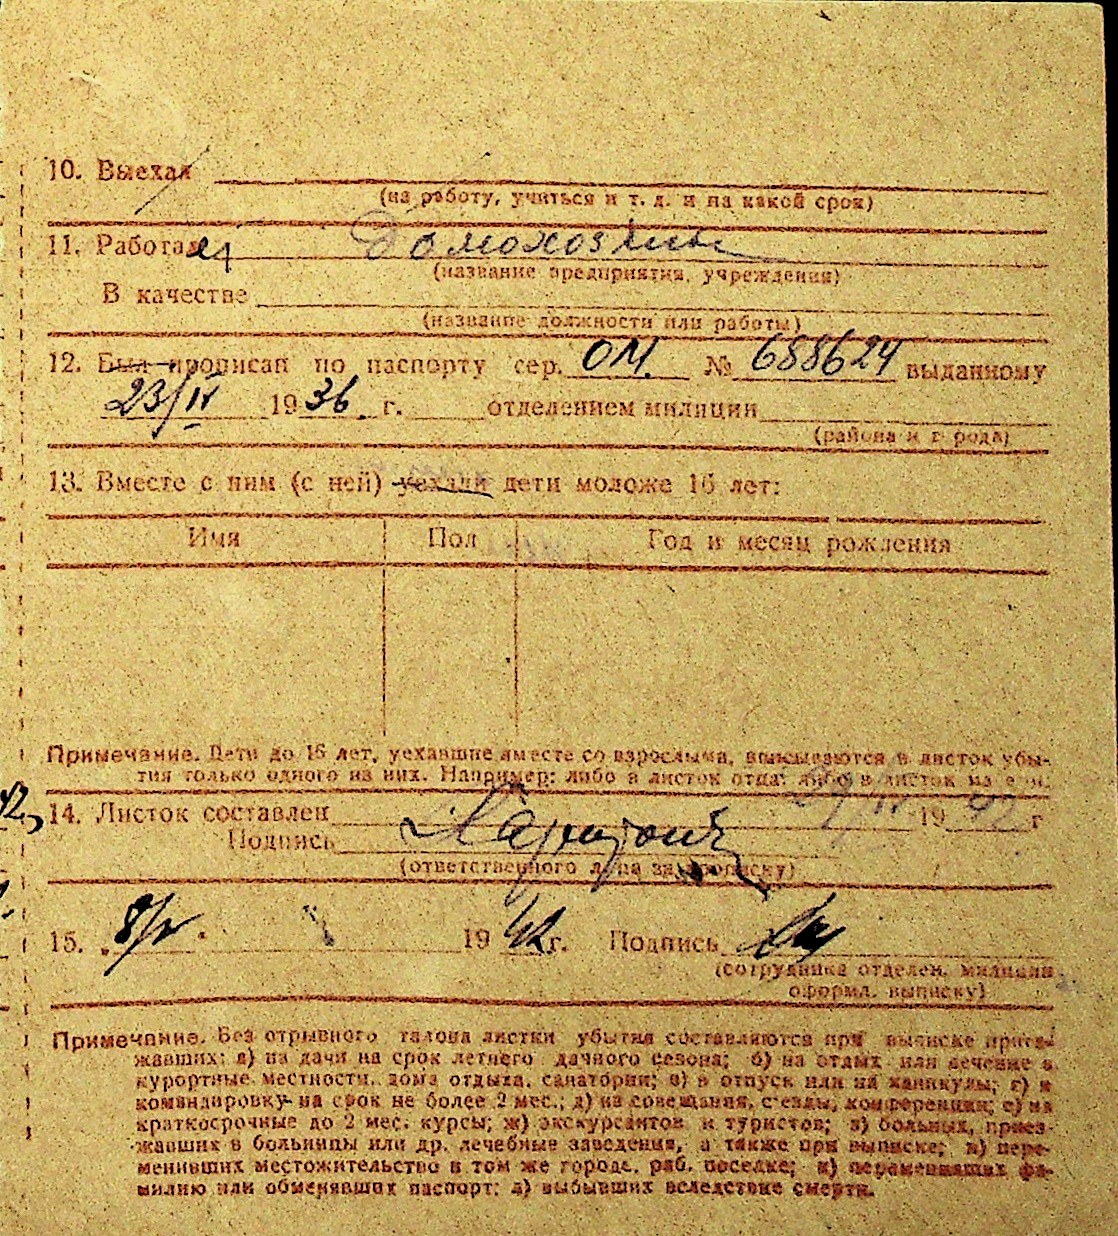 10. Выехал
(на работу, учиться и т. д. и на какой срок)
11. Работал
(название предприятия, учреждения)
В качестве
(название должности или работы)
12. Был прописан по паспорту сер. ОМ. № 688624 выданному
23/IV 1936. г. отделением милиции
(района и города)
13. Вместе с ним (с ней) уехали дети моложе 16 лет:
Имя Пол Год и месяц рождения
Примечание. Дети до 16 лет, уехавшие вместе со взрослыми, вписываются в листок убы-
тия только одного из них. Например: либо в листок отца, либо в листок матери.
14. Листок составлен 19 42 г
Подпись
(ответственного лица за прописку)
15. „8/V" 1942 г. Подпись
(сотрудника отделен. милиции
оформл. выписку)
Примечание. Без отрывного талона листки убытия составляются при выписке приез-
жавших: а) на дачи на срок летнего дачного сезона; б) на отдых или лечение в
курортные местности, дома отдыха, санатории; в) в отпуск или на каникулы; г) в
командировку на срок не более 2 мес.; д) на совещания, съезды, конференции; е) на
краткосрочные до 2 мес. курсы; ж) экскурсантов и туристов; з) больных, приез-
жавших в больницы или др. лечебные заведения, а также при выписке; и) пере-
менивших местожительство в том же городе, раб. поселке; к) переменивших фа-
милию или обменявших паспорт; л) выбывших вследствие смерти.